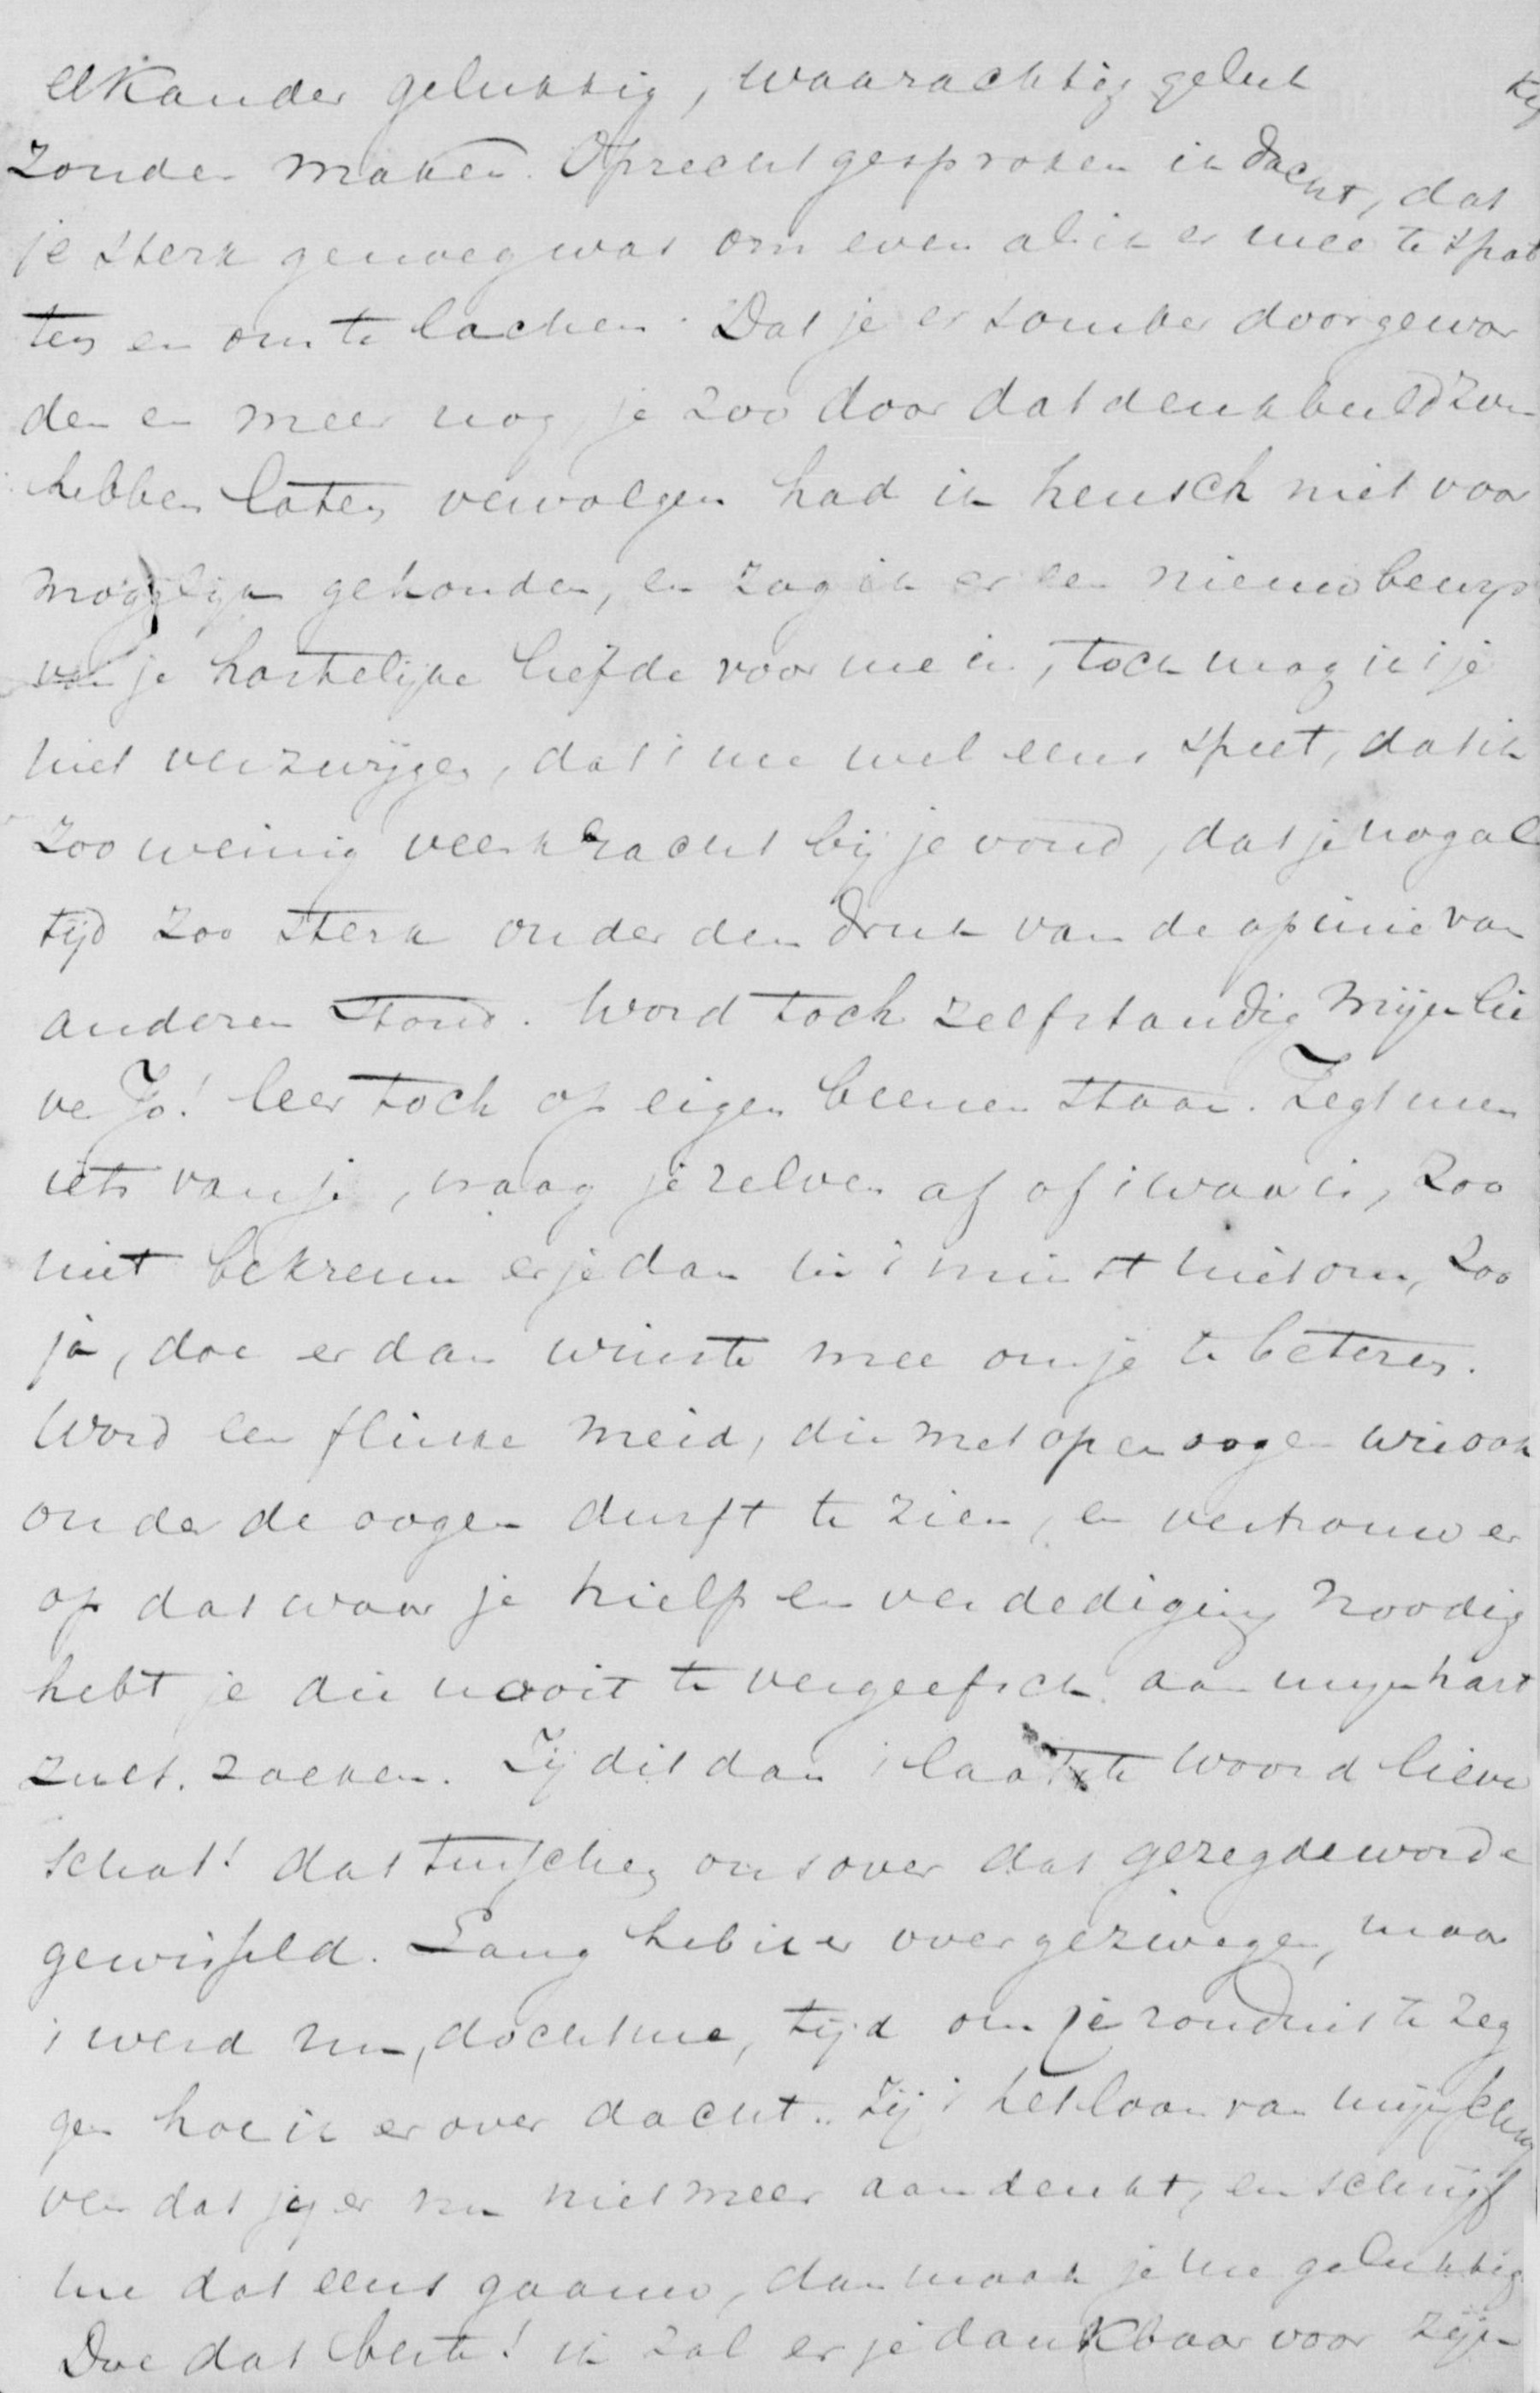 elkander gelukkig, waarachtig geluk
zouden maken. Oprecht gesproken ik dacht, dat
je sterk genoeg was om even als ik er mee te spot
ten en om te lachen. Dat je er somber door gewor
den en meer nog, je zoo door dat denkbeeld zou
hebben laten vervolgen had ik heusch niet voor
mogelijk gehouden, en zag ik er een nieuw bewijs
van je hartelijke liefde voor me in, toch mag ik 't je
niet verzwijgen, dat 't me wel eens speet, dat ik
zoo weinig veerkracht bij je vond, dat je nog al
tijd zoo sterk onder den druk van de opinie van
anderen stond. Word toch zelfstandig mijn lie
ve Jo! leer toch op eigen beenen staan. Zegt men
iets van je, vraag je zelven af of 't waar is, zoo
niet bekreun er je dan in 't minst niet om, zoo
ja, doe er dan winste mee om je te beteren.
Word een flinke meid, die met open oogen wie ook
onder de oogen durft te zien, en vertrouw er
op dat waar je hielp en verdediging noodig
hebt je die nooit te vergeefsch aan mijn hart
zult zoeken. Zij dit dan 't laatste woord lieve
schat! dat tusschen ons over dat gezegde worde
gewisseld. Lang heb ik er over gezwegen, maar
't werd nu, dacht me, tijd om je ronduit te zeg
gen hoe ik er over dacht. Zij 't het loon van mijn schrij
ven dat jij er nu niet meer aan denkt, en schrijf
me dat eens gaauw, dan maak je me gelukkig
Doe dat beste! ik zal er je dankbaar voor zijn